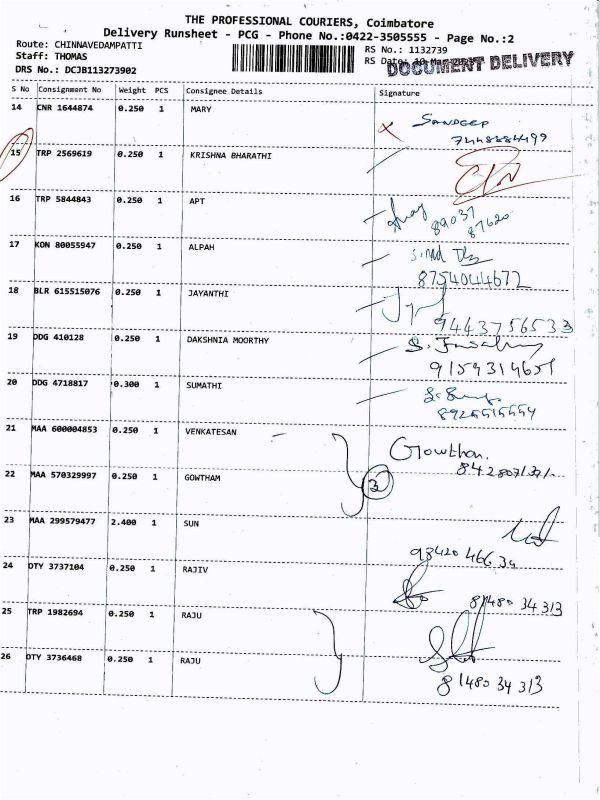 THE PROFESSIONAL COURIERS, Coimbatore
Delivery Runsheet - PCG - Phone No.:0422-3505555 - Page No.:2
Route: CHINNAVEDAMPATTI
Staff: THOMAS
DRS No.: DCJB113273902
RS No.: 1132739
RS Date:
DOCUMENT DELIVERY
S No Consignment No Weight PCS Consignee Details Signature
14 CNR 1644874 0.250 1 MARY
SANDEEP
15 TRP 2569619 0.250 1 KRISHNA BHARATHI
16 TRP 5844843 0.250 1 APT
89037
87620
17 KON 80055947 0.250 1 ALPAH
8754044672
18 BLR 615515076 0.250 1 JAYANTHI
9443756533
19 DDG 410128 0.250 1 DAKSHNIA MOORTHY
9159314651
20 DDG 4718817 0.300 1 SUMATHI
21 MAA 600004853 0.250 1 VENKATESAN
Gowthan.
22 MAA 570329997 0.250 1 GOWTHAM
3
23 MAA 299579477 2.400 1 SUN
98420 466 34
24 OTY 3737104 0.250 1 RAJIV
81480 34 313
25 TRP 1982694 0.250 1 RAJU
26 OTY 3736468 0.250 1 RAJU
81480 34 313